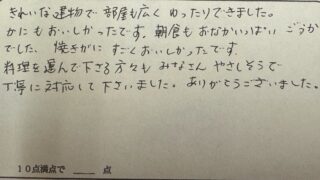 きれいな建物で部屋も広くゆったりできました。
かにもおいしかったです。朝食もおなかいっぱいごうか
でした。焼きがにすごくおいしかったです。
料理を運んで下さる方々もみなさんやさしそうで
丁寧に対応して下さいました。ありがとうございました。
10点満点で ____ 点